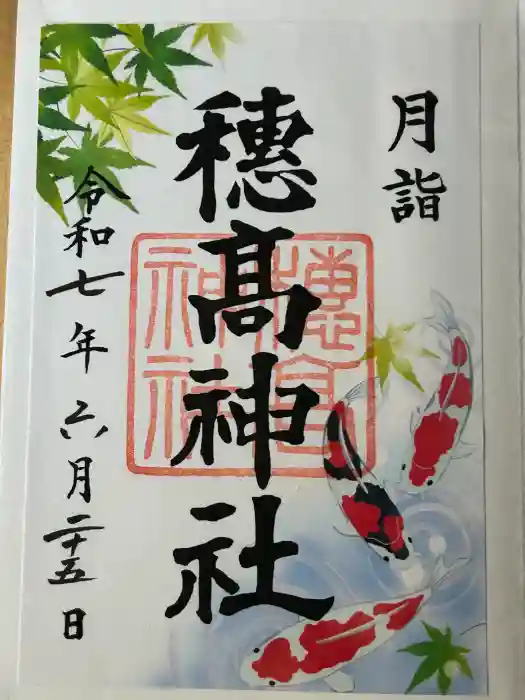 月詣
穗髙神社
穗高神社
令和七年六月二十五日